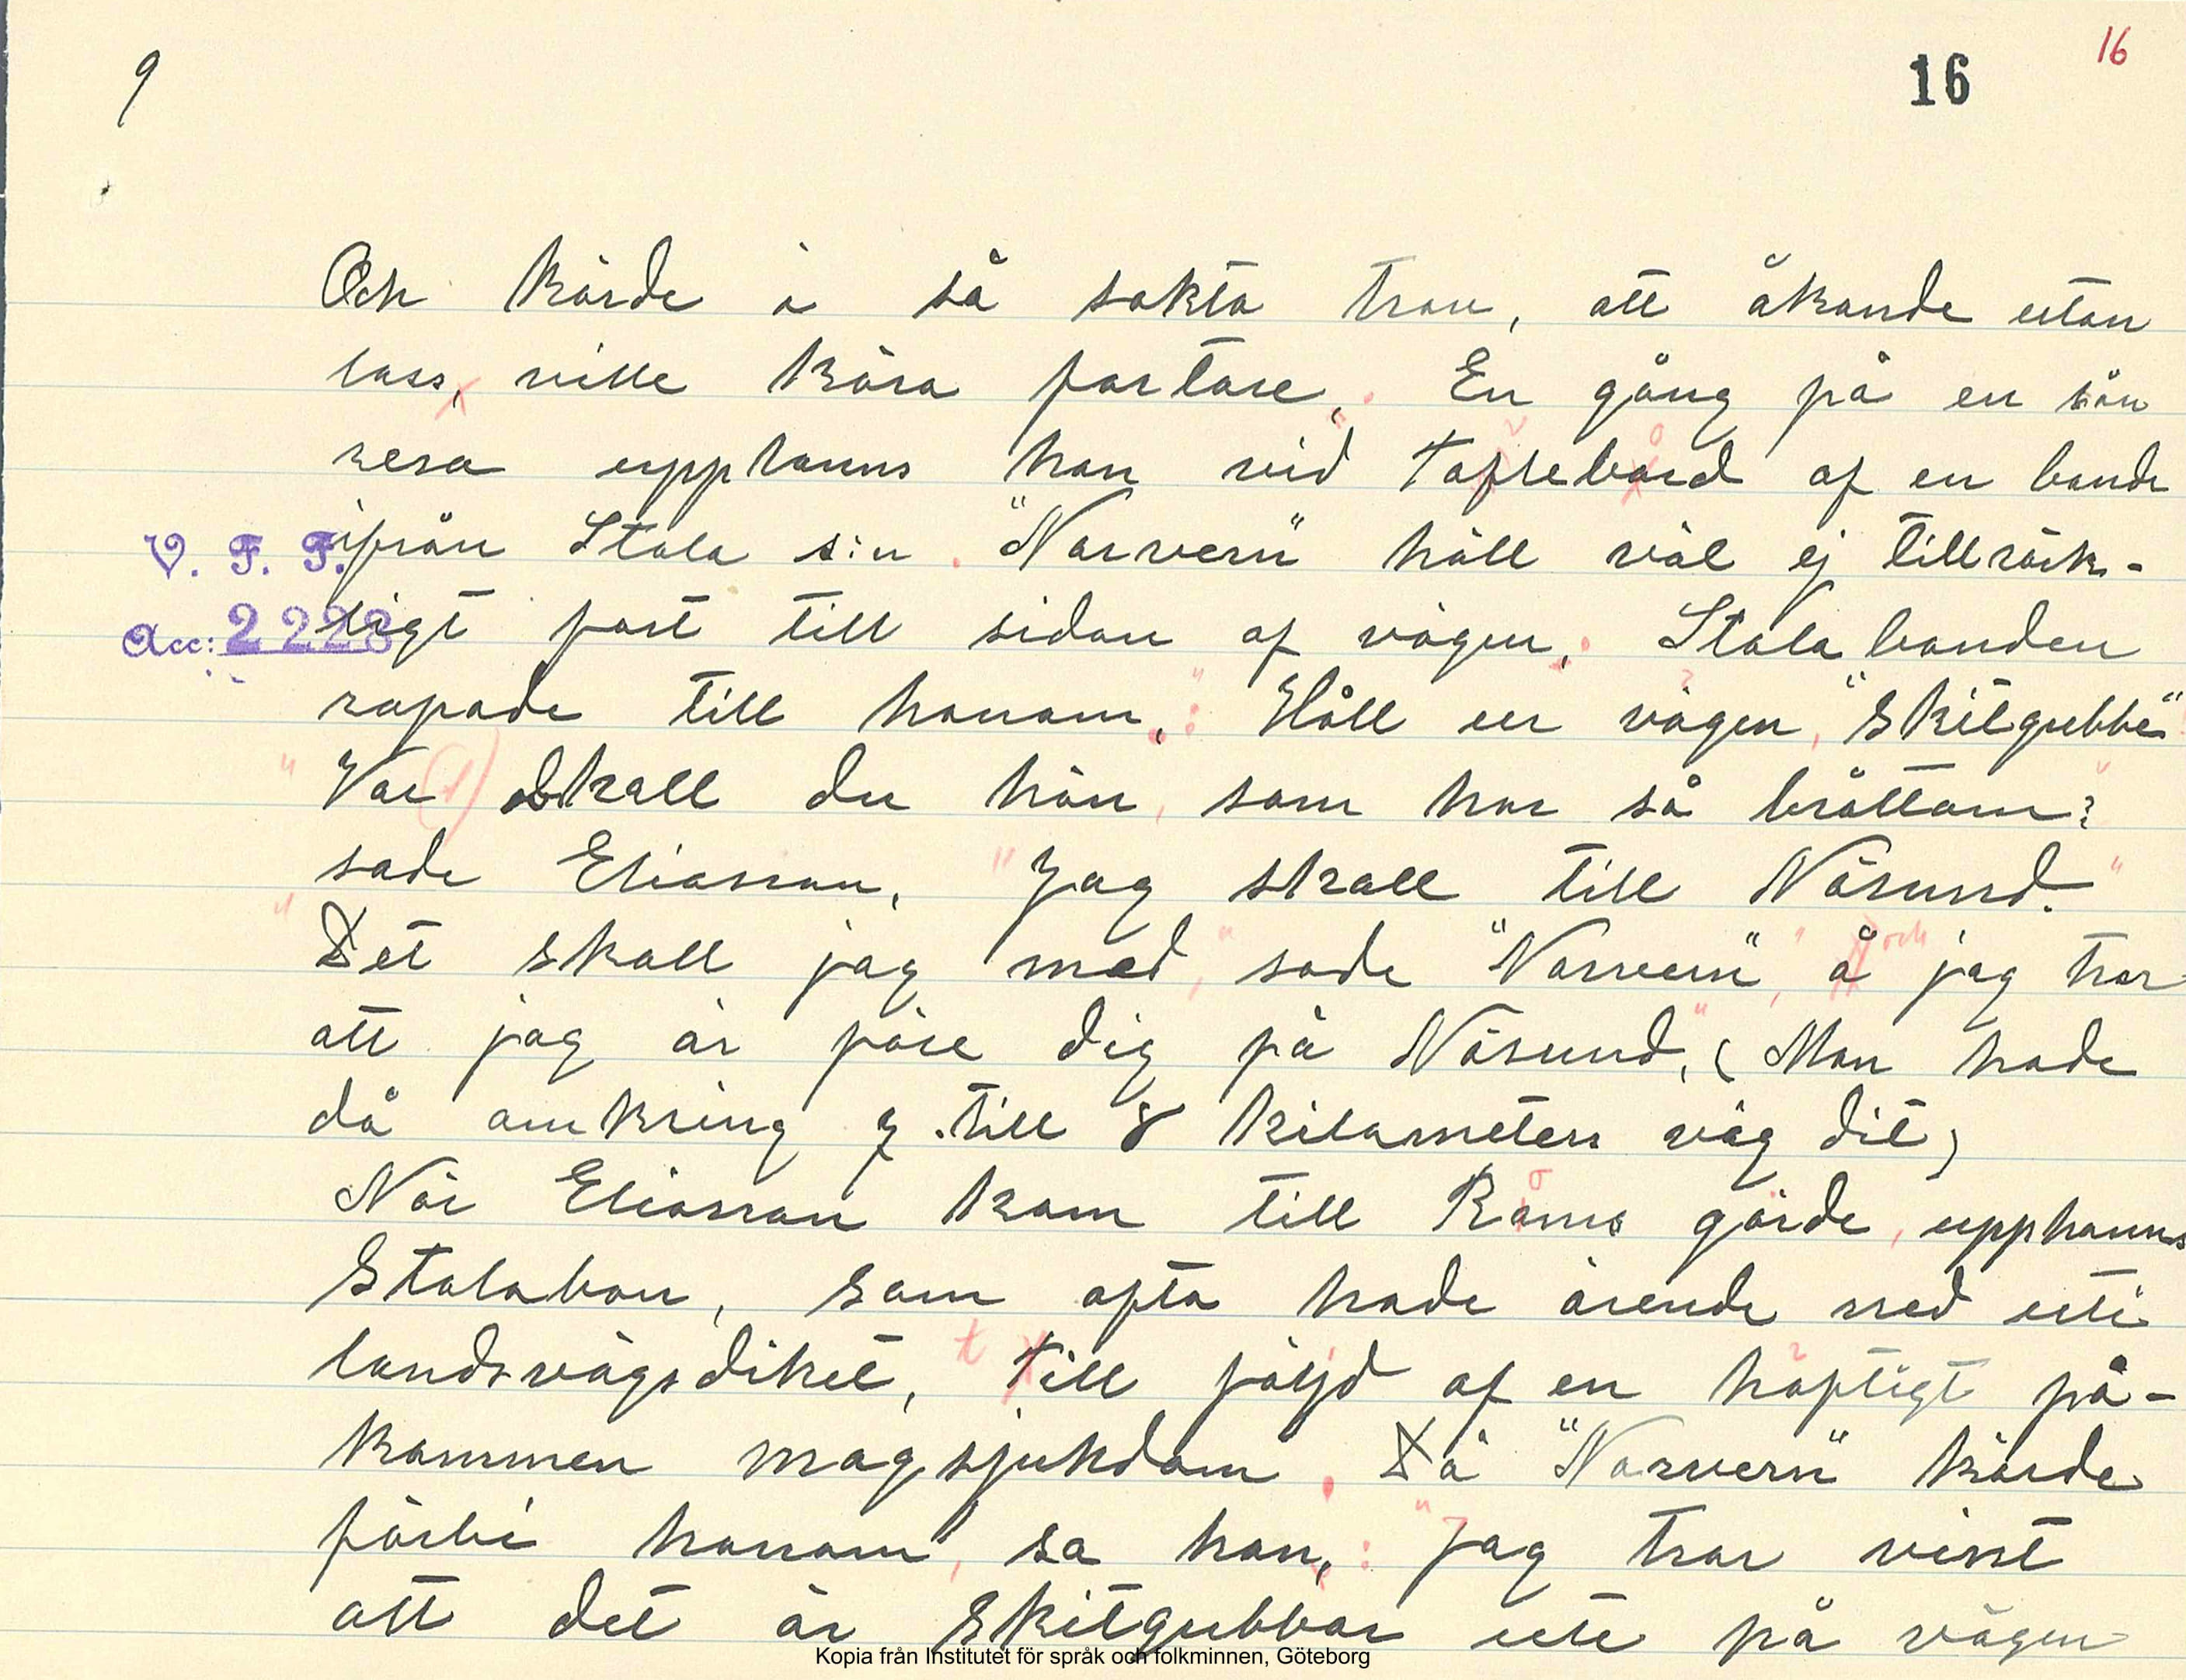 9
16
16
Och körde i så sakta trav, att åkande utan
lass, ville köra fortare. En gång på en sån
resa upphanns han vid Toftebord af en bonde
V. F. T.
ifrån Stala s:n. "Norvern" höll väl ej tillräck-
Acc: 2228
ligt fort till sidan af vägen. Stala bonden
ropade till honom: Håll ur vägen, "Skitgubbe"!
"Var skall du hän, som har så bråttom?"
sade Eliasson, "Jag skall till Nösund."
"Det skall jag med", sade "Norvern", och jag tror
att jag är före dig på Nösund." (Man hade
då omkring 7 till 8 kilometers väg dit)
När Eliasson kom till Röms gärde, upphanns
Stalabon, som ofta hade ärende ned uti
landsvägsdiket, till följd af en häftigt på-
kommen magsjukdom. Då "Norvern" körde
förbi honom, sa han: "Jag tror visst
att det är Skitgubbar ute på vägen
Kopia från Institutet för språk och folkminnen, Göteborg